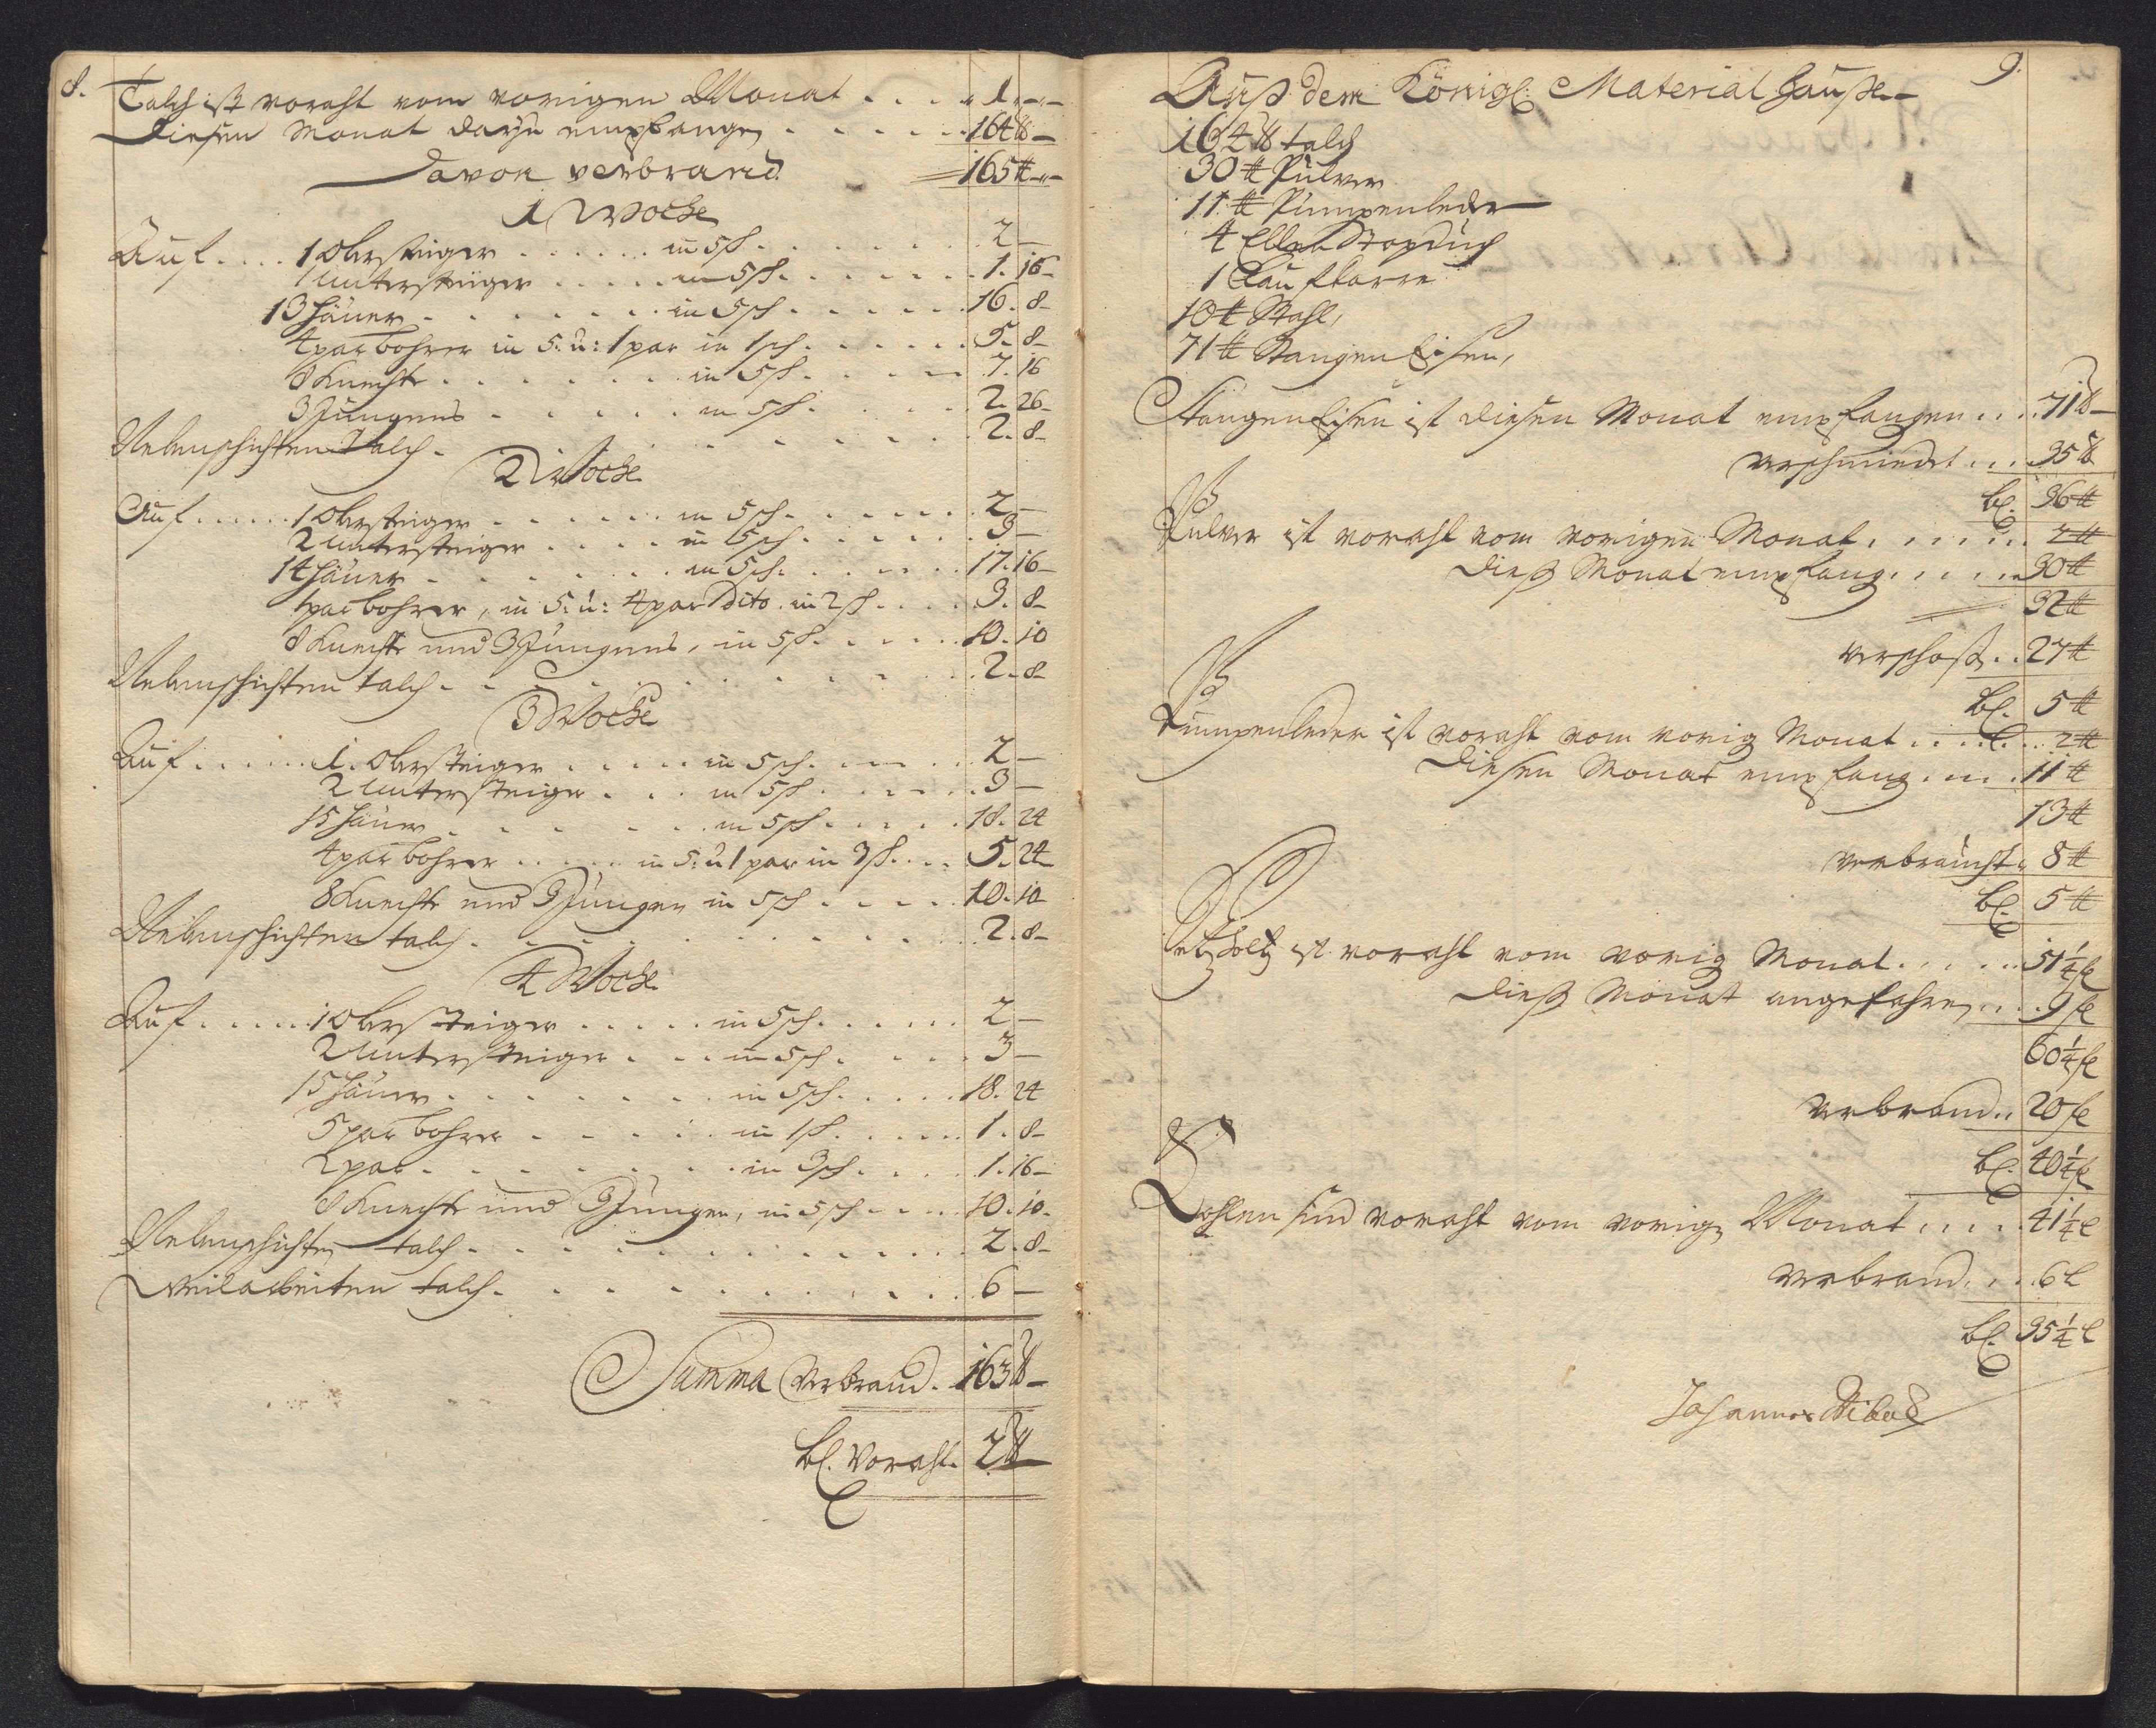 8.
Talch ist voraht vom vorigen Monat . . . . 1 „ —
Diesen Monat darzu empfangen . . . . . . 164 ℔ —
Davon verbrand. 165 ℔ „ —
1 Woche
Auf . . . . 1 Obersteiger . . . . . . in 5 sch . . . . . . 2 —
1 Untersteiger . . . . . in 5 sch . . . . . . 1. 16 —
13 Häuer . . . . . . . in 5 sch . . . . . 16. 8 —
4 par bohrer in 5. u: 1 par in 1 sch . . . . . . 5. 8 —
8 Knechte . . . . . . in 5 sch . . . . . 7. 16
3 Jungens . . . . . in 5 sch . . . . . 2. 26 —
Nebenschichten Talch . . . . . . . . 2. 8 —
2 Woche
Auf . . . . . . 1 Obersteiger . . . . . . in 5 sch . . . . . . 2 —
2 Untersteiger . . . . in 5 sch . . . . . . 3 —
14 Häuer . . . . . . . in 5 sch . . . . . . 17. 16 —
1 par bohrer, in 5. u: 4 par Dito. in 2 sch . . . . 3. 8 —
8 Knechte und 3 Jungens, in 5 sch . . . . . 10. 10
Nebenschichten talch . . . . . . . . . . . . 2. 8 —
3 Woche
Auf . . . . . . 1. Obersteiger . . . . . in 5 sch . . . . . . 2 —
2 Untersteiger . . . in 5 sch . . . . . . 3 —
15 Häuer . . . . . . . in 5 sch . . . . . 18. 24
4 par bohrer . . . . . in 5. u 1 par in 3 sch . . . . 5. 24
8 Knechte und 3 Jungen in 5 sch . . . . . 10. 10
Nebenschichten talch . . . . . . . . . . . 2. 8 —
4 Woche
Auf . . . . . 1 Obersteiger . . . . . in 5 sch . . . . . . 2 —
2 Untersteiger . . . in 5 sch . . . . . 3 —
15 Häuer . . . . . . . in 5 sch . . . . . 18. 24
5 par bohrer . . . . . in 1 sch . . . . . 1. 8 —
2 par . . . . . . . . in 3 sch . . . . 1. 16 —
8 Knechte und 3 Jungen, in 5 sch . . . . . 10. 10 —
Nebenschichten talch . . . . . . . . . . . . 2. 8 —
Weilarbeiten talch . . . . . . . . . . . 6 —
Summa Verbrand. 163 ℔ —
bl. Voraht. 2 ℔ —
9.
Auß dem Königl: Material Hauße —
164 ℔ talch
30 ℔ Pulver
11 ℔ Pumpenleder
4 Ellen Stopduch
1 Lauf karre
10 ℔ Stahl,
71 ℔ Stangen Eisen,
Stangen Eisen ist diesen Monat empfangen . . . 71 ℔ —
verschmiedt . . . 35 ℔
bl. 36 ℔
Pulver ist voraht vom vorigen Monat . . . . . . 2 ℔
dieß Monat empfang . . . . . 30 ℔
32 ℔
verschoß . . 27 ℔
bl. 5 ℔
Pumpenleder ist voraht vom vorig Monat . . . . . 2 ℔
diesen Monat empfang . . . . 11 ℔
13 ℔
verbraucht . 8 ℔
bl. 5 ℔
Setzholtz ist voraht vom vorig Monat . . . . . 51 1/4 fl
dieß Monat angefahren . . . 9 fl
60 1/4 fl
verbrand . . 20 fl
bl. 40 1/4 fl
Kohlen sind voraht vom vorigen Monat . . . . . 41 1/4 l
verbrand . . . 6 l
bl. 35 1/4 l
Johannes